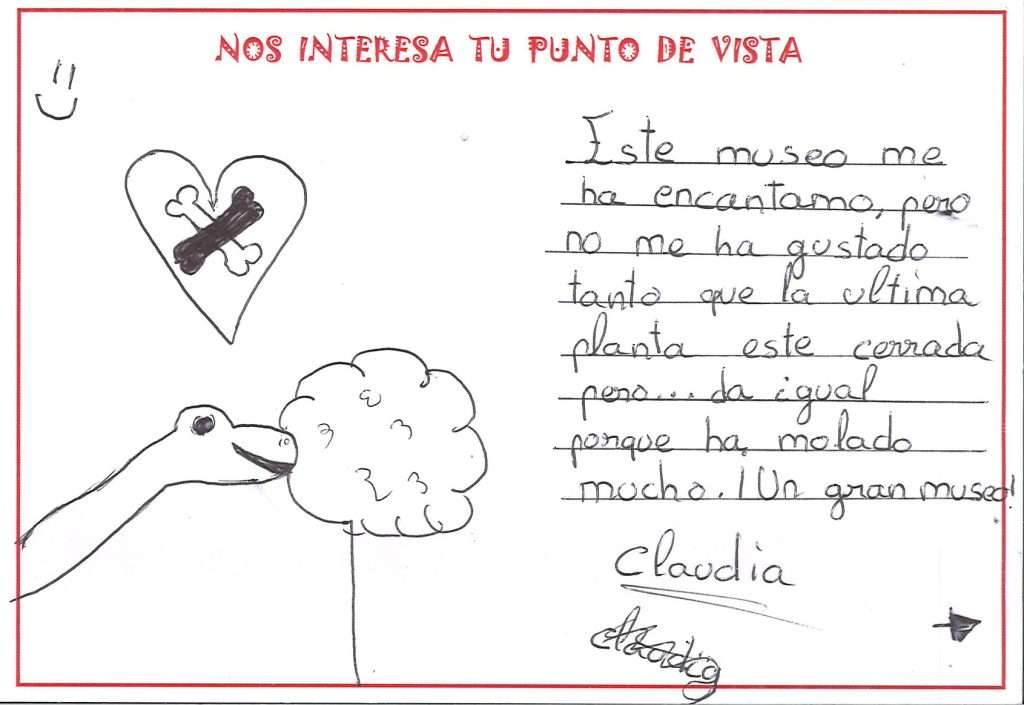 NOS INTERESA TU PUNTO DE VISTA
Este museo me
ha encantamo, pero
no me ha gustado
tanto que la ultima
planta este cerrada
pero... da igual
porque ha molado
mucho. ¡Un gran museo!
Claudia
Claudia